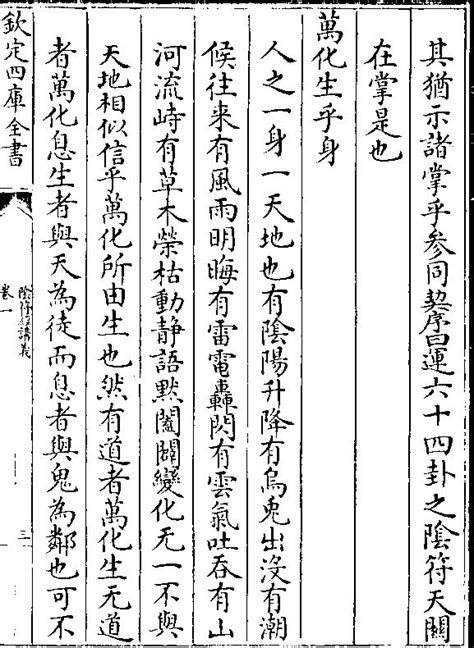 其猶示諸掌乎參同契序曰運六十四卦之陰符天關
在掌是也
萬化生乎身
人之一身一天地也有陰陽升降有烏兎出沒有潮
候往来有風雨明晦有雷電轟閃有雲氣吐吞有山
河流峙有草木榮枯動静語默闔闢變化无一不與
天地相似信乎萬化所由生也然有道者萬化生无道
者萬化息生者與天為徒而息者與鬼為鄰也可不
欽定四庫全書
陰符經講義
卷一
三